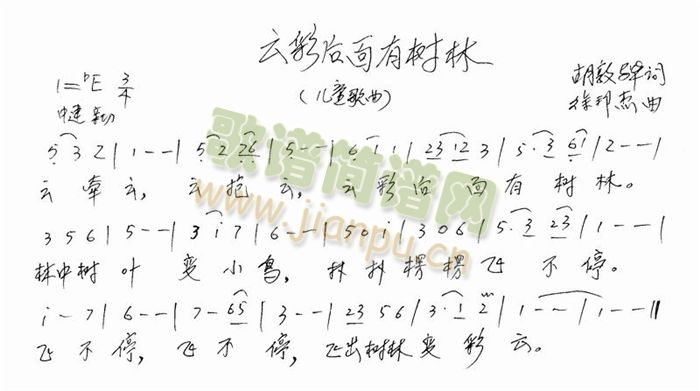 云彩后面有树林
(儿童歌曲)
1=ᵇE 3/4
中速
词
徐邦杰 曲
5 3 2 | 1 - - | 5 2 2 6 | 5 - - | 6 i 1 | 2 3 1 2 3 | 5 · 3 6 1 | 2 - - |
云牵云, 云抱云, 云彩后面有树林。
3 5 6 | 5 - - | 3 i 7 | 6 - - | 5 0 i | 3 0 6 | 5 · 3 2 3 | 1 - - |
林中树叶变小鸟, 扑扑楞楞飞不停。
i - 7 | 6 - - | 7 - 6 5 | 3 - - | 2 3 5 6 | 3 · 1 2 | 1 - - | 1 - - ||
飞不停, 飞不停, 飞出树林变彩云。
歌谱简谱网
www.jianpu.cn